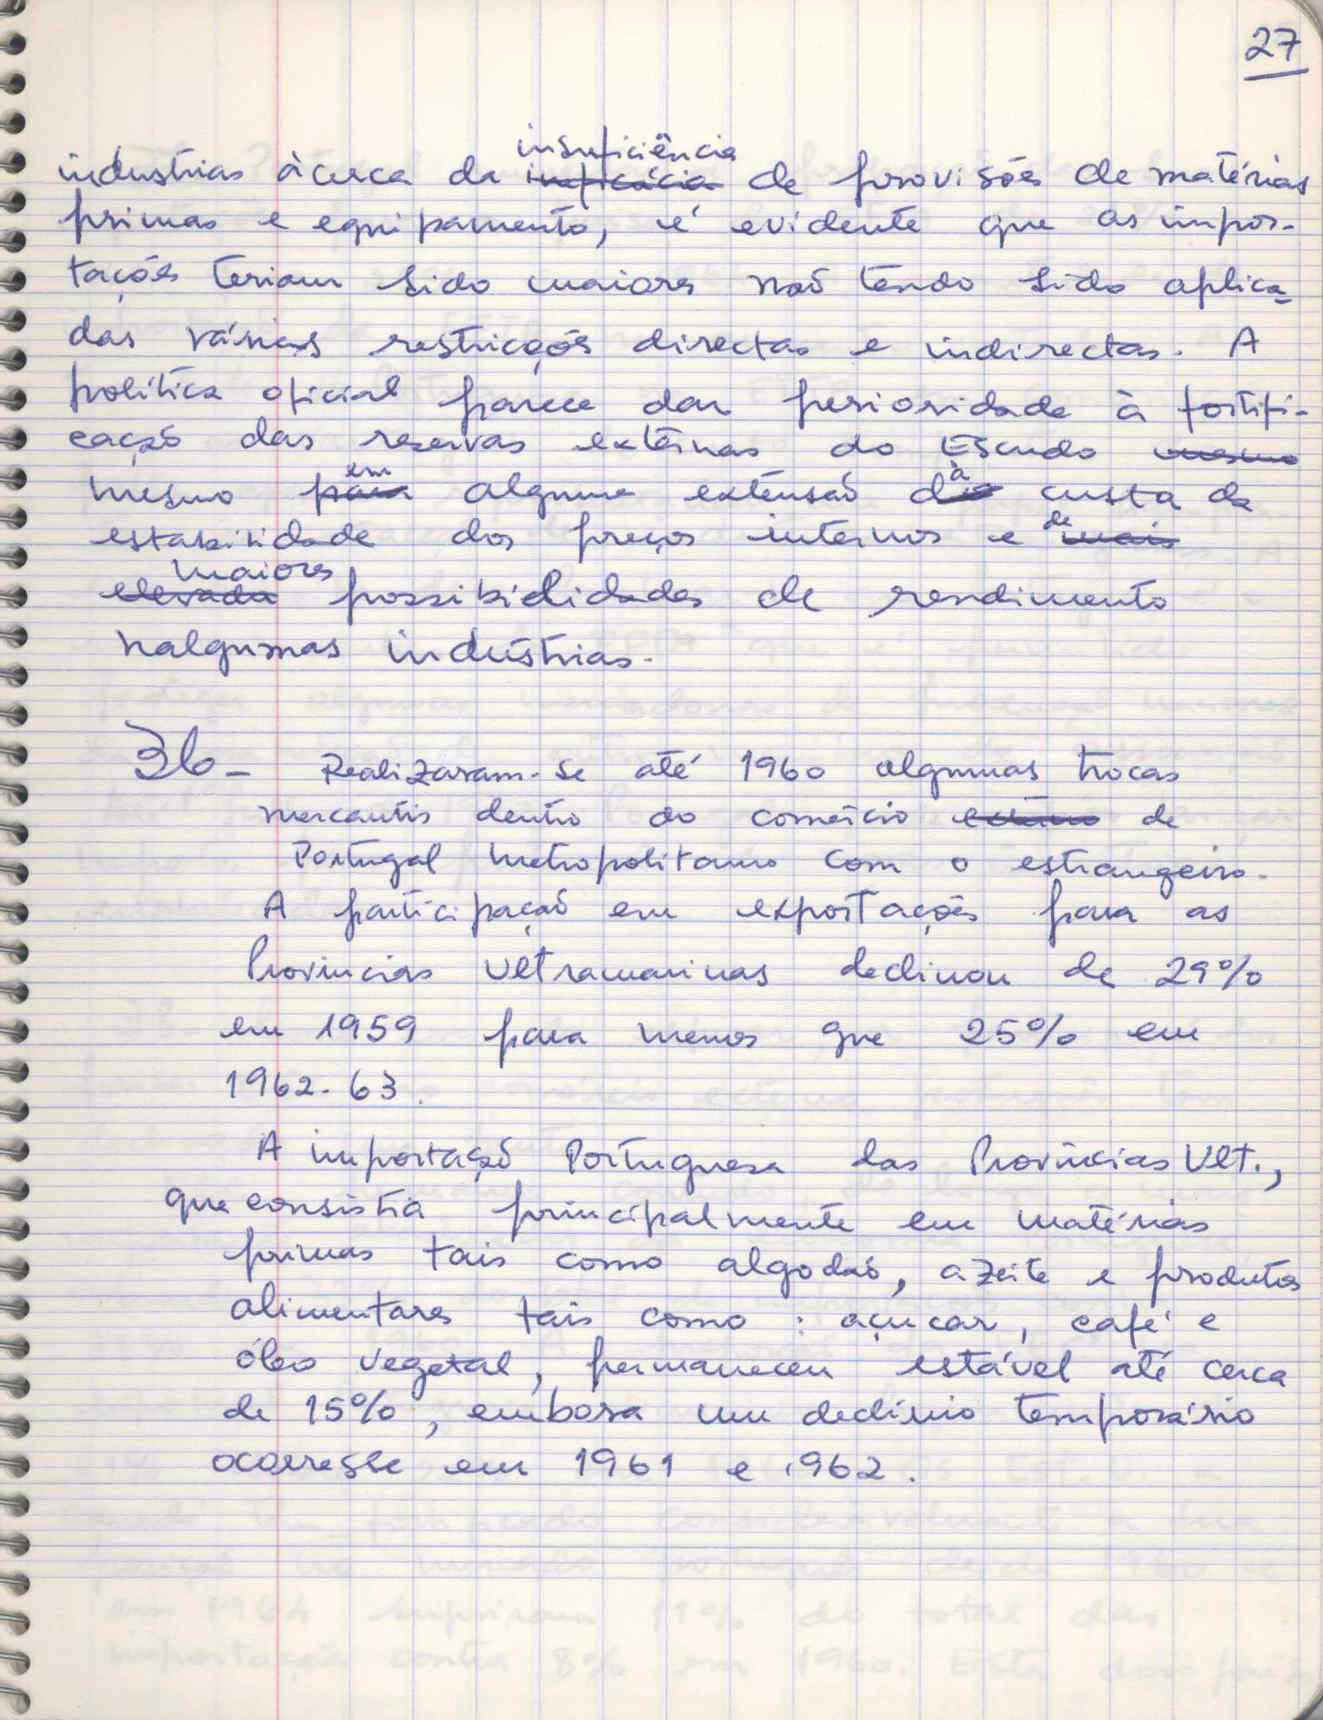 27
industrias àcerca da insuficiência ineficácia de provisões de matérias
primas e equipamento, é evidente que as impor-
tações teriam sido maiores não tendo sido aplica-
das várias restricções directas e indirectas. A
política oficial parece dar perioridade à fortifi-
cação das reservas externas do Escudo mesmo
mesmo para em alguma extensão à custa da
estabilidade dos preços internos e de mais
elevada maiores possibilidades de rendimento
nalgumas indústrias.
36- Realizaram-se até 1960 algumas trocas
mercantis dentro do comércio externo de
Portugal Metropolitano com o estrangeiro.
A participação em exportações para as
Províncias Ultramarinas declinou de 29%
em 1959 para menos que 25% em
1962-63.
A importação Portuguesa das Províncias Ult.,
que consistia principalmente em matérias
primas tais como algodão, azeite e produtos
alimentares tais como: açucar, café e
óleo vegetal, permaneceu estável até cerca
de 15%, embora um declínio temporário
ocorresse em 1961 e 1962.